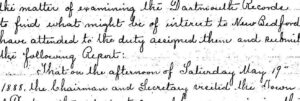 the matter of examining the Dartmouth Records
to find what might be of interest to New Bedford
have attended to the duty assigned them and submit
the following Report:
That on the afternoon of Saturday May 19th
1888, the Chairman and Secretary visited the Town